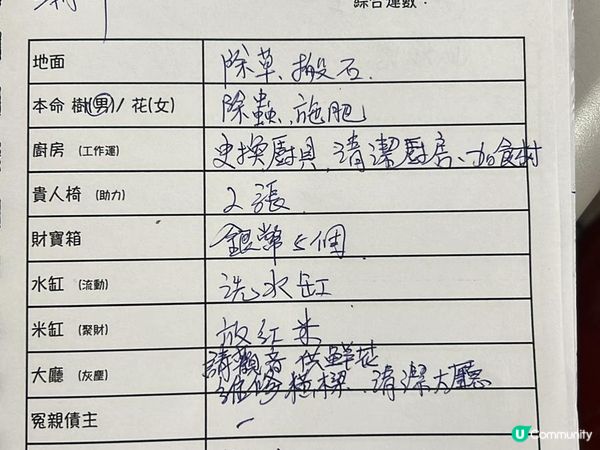 綜合運數：
地面 除草、搬石.
本命 樹(男)/ 花(女) 除蟲、施肥
廚房 (工作運) 更換廚具、清潔廚房、加食材
貴人椅 (助力) 2張.
財寶箱 銀幣5個
水缸 (流動) 洗水缸
米缸 (聚財) 放紅米
大廳 (灰塵) 請觀音 供鮮花
維修樑 清潔大廳
冤親債主 -
U Community